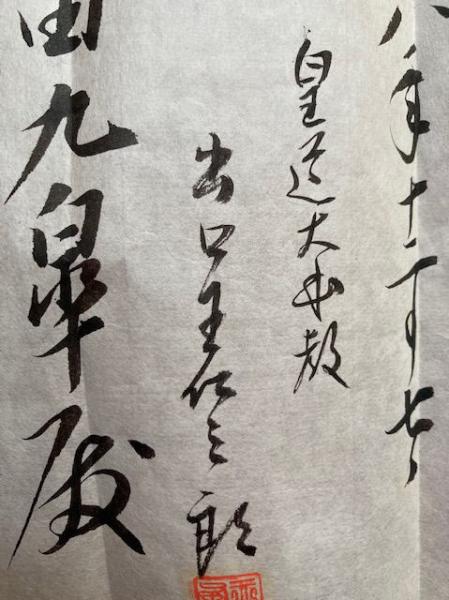 八年十二月七日
皇道大本教
出口王仁三郎
九皐殿